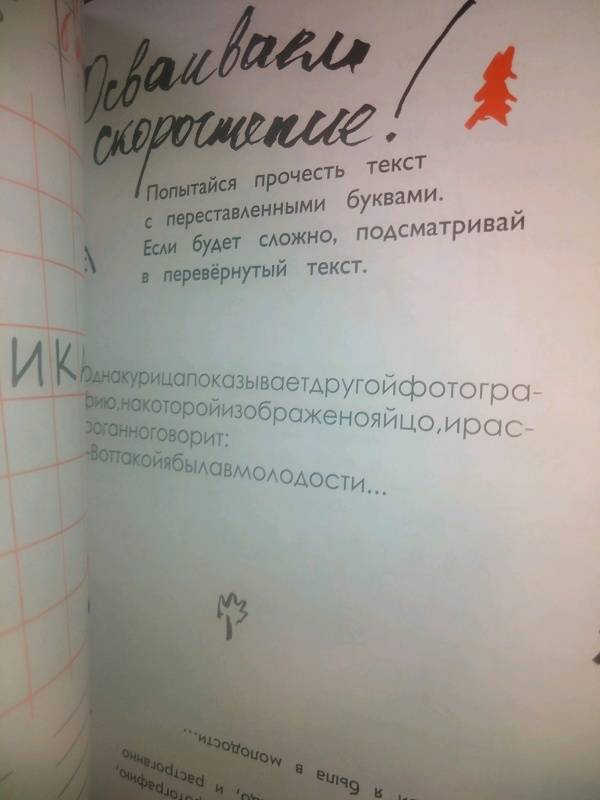 Осваиваем
скорочтение!
Попытайся прочесть текст
с переставленными буквами.
Если будет сложно, подсматривай
в перевёрнутый текст.
ИК
Однакурицапоказываетдругойфотогра-
фию,накоторойизображенояйцо,ирас-
роганноговорит:
-Воттакойябылавмолодости...
я была в молодости...
и растроганно
фотографию,